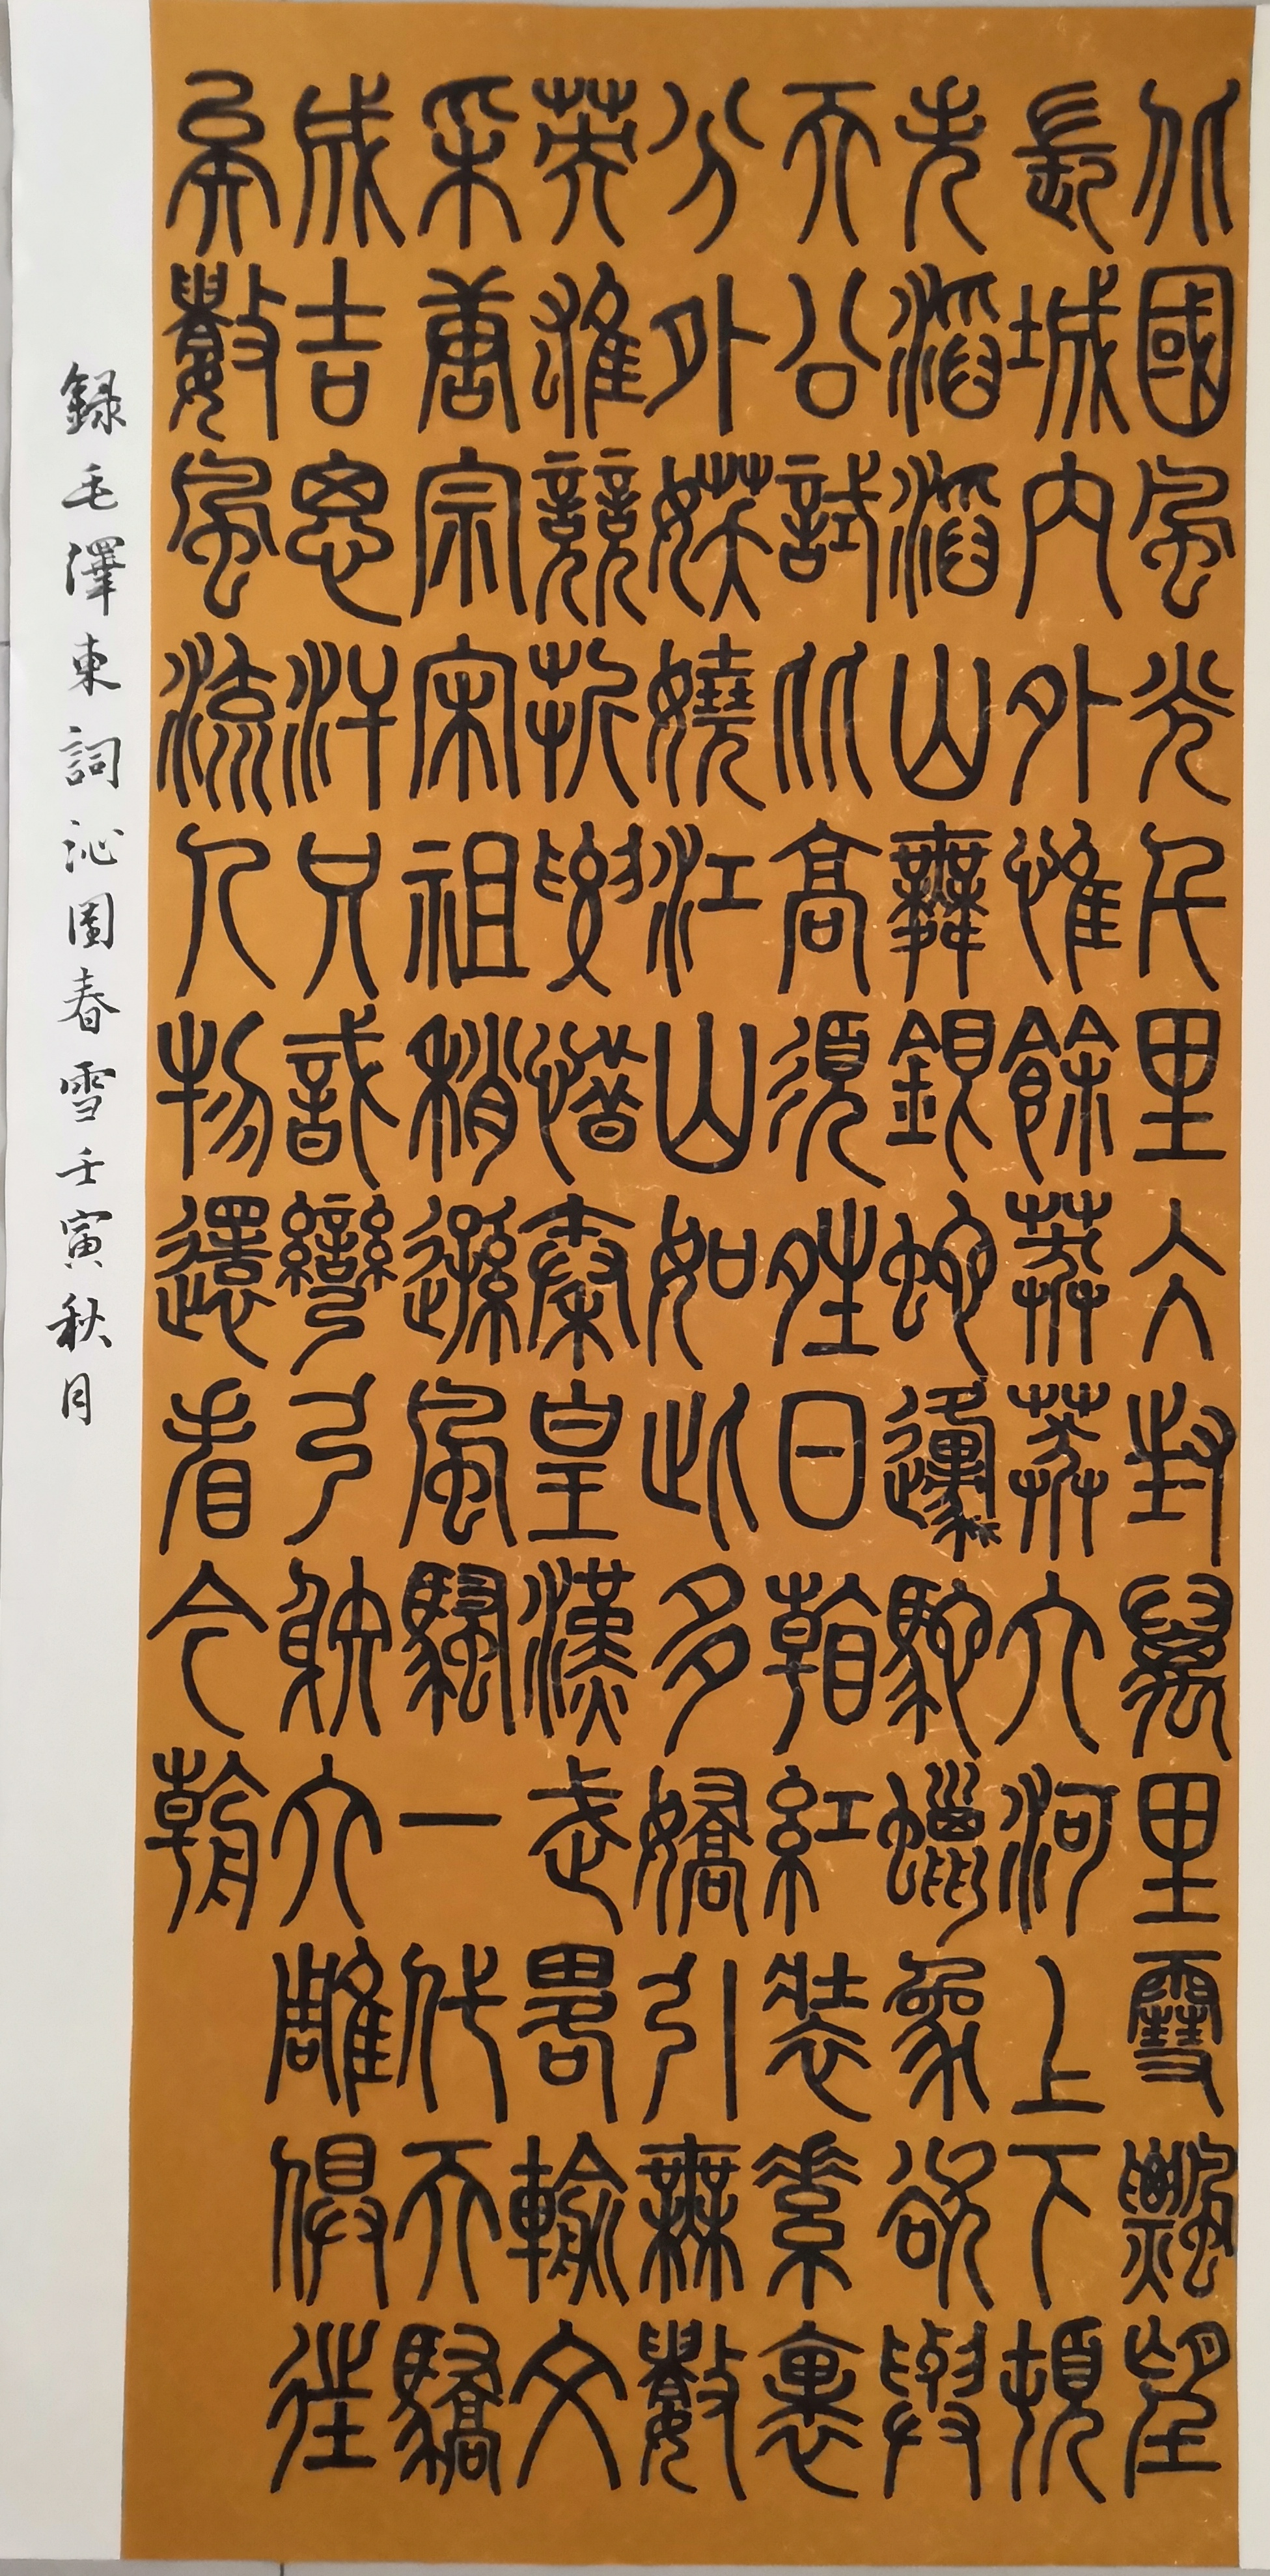 北國風光千里冰封萬里雪飄望
長城內外惟餘莽莽大河上下頓
失滔滔山舞銀蛇原馳蠟象欲與
天公試比高須晴日看紅裝素裹
分外妖嬈江山如此多嬌引無數
英雄競折腰惜秦皇漢武略輸文
采唐宗宋祖稍遜風騷一代天驕
成吉思汗只識彎弓射大雕俱往
矣數風流人物還看今朝
録毛澤東詞沁園春雪壬寅秋月